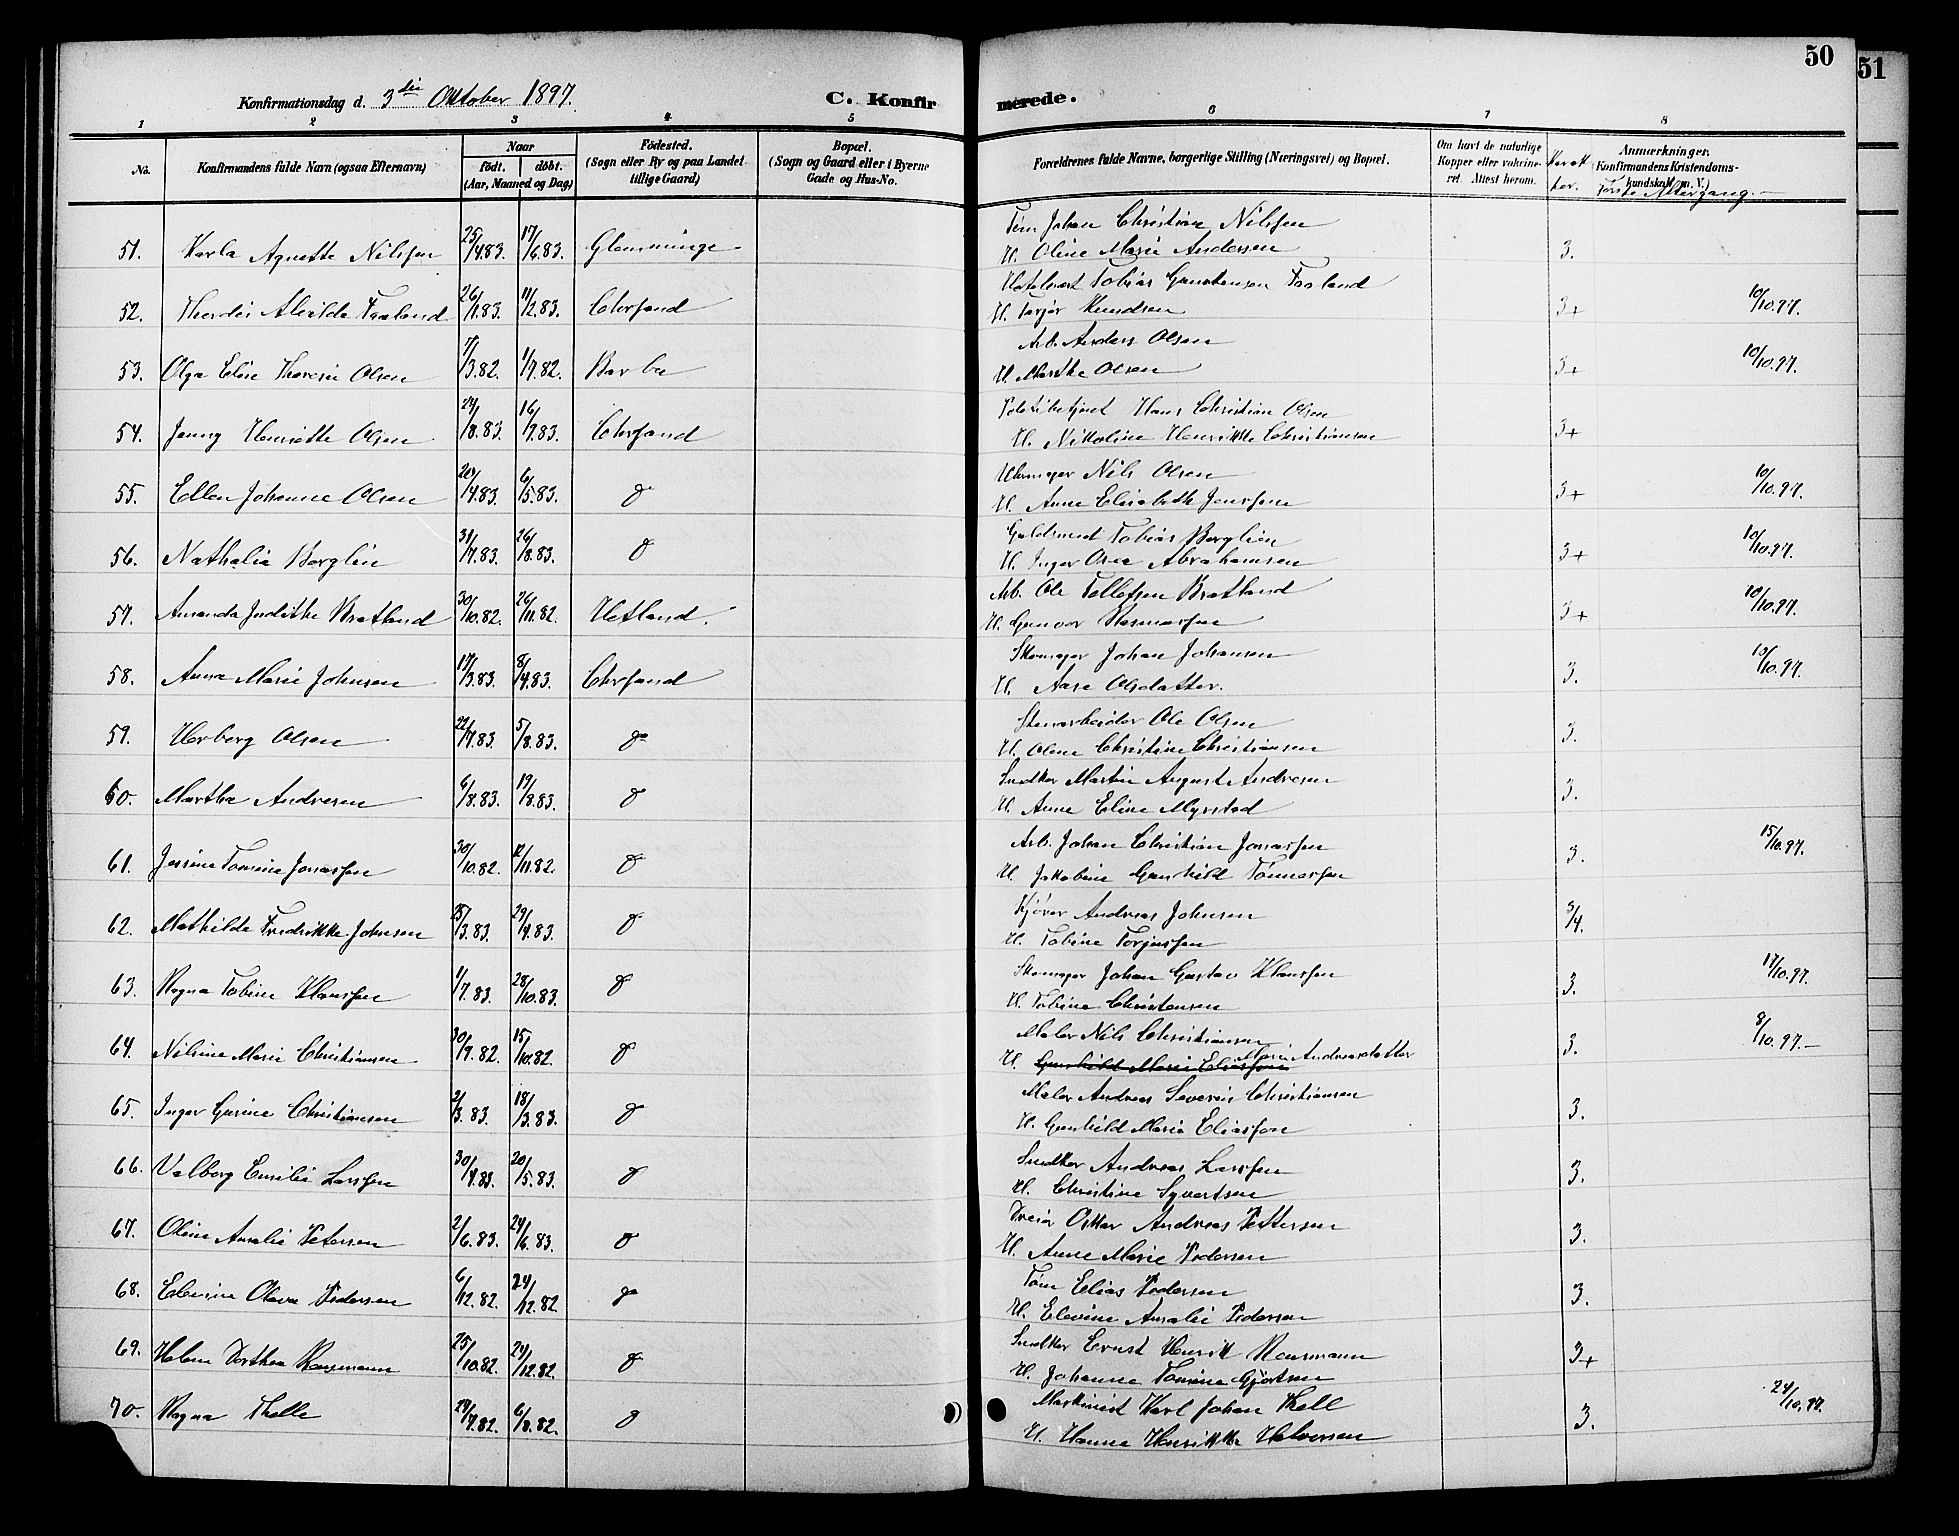 50
51
Konfirmationsdag d. 3die Oktober 1897.
C. Konfirmerede.
1 2 3 4 5 6 7 8
No.
Konfirmandens fulde Navn (ogsaa Efternavn)
Naar
födt. döbt.
(Aar, Maaned og Dag)
Födested.
(Sogn eller By og paa Landet
tillige Gaard)
Bopæl.
(Sogn og Gaard eller i Byerne
Gade og Hus-No.
Forældrenes fulde Navne, borgerlige Stilling (Næringsvei) og Bopæl.
Om havt de naturlige
Kopper eller vaccine-
ret. Attest herom.
Karak
ter.
Anmærkninger.
(Konfirmandens Kristendoms-
kundskab m. V.)
Förste Altergang.
Töm Johan Christian Nilssen
51. Karla Agnette Nilssen 25/4.83. 17/6.83. Glemminge H. Oline Marie Andersen 3.
Tobias Gunstensen Faaland
52. Thordis Alvilde Faaland 26/1.83. 11/2.83. Chrsand H. Torjør Knudsen 3+ 10/10.97.
Arb. Anders Olsen
53. Olga Eline Therese Olsen 7/3.82. 1/7.82. Barbu H. Marthe Olsen 3+ 10/10.97.
Politibetjent Hans Christian Olsen
54. Jenny Henriette Olsen 24/8.83. 16/9.83. Chrsand H. Nikoline Henrikke Christiansen 3+
Uhrmager Nils Olsen
55. Ellen Johanne Olsen 20/4.83. 6/5.83. do H. Anne Elisabeth Jenssen 3+ 10/10.97.
Guldsmed Tobias Berglien
56. Nathalia Berglien 31/7.83. 26/8.83. do H. Inger Osea Abrahamsen 3+ 10/10.97.
Arb. Ole Tellefsen Bratland
57. Amanda Judithe Bratland 30/10.82. 26/11.82. Hetland. H. Gunvor Rasmussen 3+ 10/10.97.
Skomager Johan Johansen
58. Anna Marie Johnsen 17/3.83. 8/4.83. Chrsand H. Aase Olsdatter. 3. 10/10.97.
Stenarbeider Ole Olsen
59. Herborg Olsen 22/7.83. 5/8.83. do H. Oline Christine Christiansen 3.
Snedker Martin August Andresen
60. Marthe Andresen 6/8.83. 19/8.83. do H. Anne Eline Myrstad 3.
Arb. Johan Christian Jonassen
61. Jensine Tomine Jonassen 30/10.82. 12/11.82. do H. Jakobine Gunhild Tönnessen 3. 15/10.97.
Kjörer Andreas Johnsen
62. Mathilde Fredrikke Johnsen 25/3.83. 29/4.83. do H. Tobine Torjussen 3/4.
Skomager Johan Gustav Klaussen
63. Ragna Tobine Klaussen 1/7.83. 28/10.83. do H. Tobine Christensen 3. 17/10.97.
Maler Nils Christiansen
64. Nilsine Marie Christiansen 30/9.82. 15/10.82. do H. Gunhild Marie Eliassen Marie Andreasdatter 3. 8/10.97.
Maler Andreas Severin Christiansen
65. Inger Gurine Christiansen 2/3.83. 18/3.83. do H. Gunhild Marie Eliassen 3.
Snedker Andreas Larssen
66. Valborg Emilie Larssen 30/4.83. 20/5.83. do H. Christine Syvertsen 3.
Dreier Oskar Andreas Pettersen
67. Oline Amalie Petersen 2/6.83. 24/6.83. do H. Anne Marie Pedersen 3.
Töm Elias Pedersen
68. Edvine Olava Pedersen 6/12.82. 24/12.82 do H. Elevine Amalie Pedersen 3.
Snedker Ernst Henrik Rousmann
69. Helene Dorthea Rousmann 25/10.82. 24/12.82. do H. Johanne Tomine Gjertsen 3+
Maskinist Karl Johan Thell
70. Ragna Thelle 29/7.82. 6/8.82. do H. Hanne Henrikke Halvorsen 3. 24/10.97.